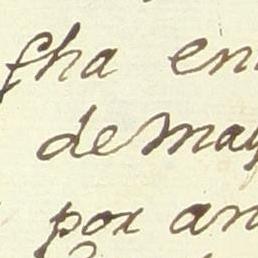 fha en
de may
por an